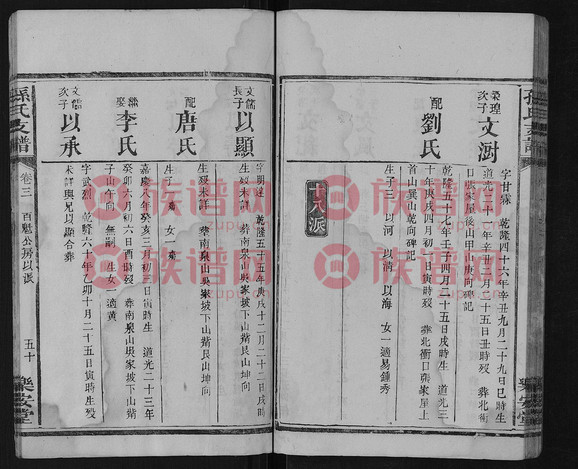 孫氏支譜
榮瑝
次子
文澍
字甘霖 乾隆四十六年辛丑九月二十九日巳時生
道光二十一年辛丑二月二十五日丑時歿 葬北衝
口張家屋後山甲山庚向碑記
配
劉氏
乾隆五十七年壬子四月二十五日戌時生 道光三
十年庚戌四月初一日寅時歿 葬北衝口張家屋上
首山巽山乾向碑記
生子三 以河 以清 以海 女一適易鍾秀
十八派
樂安堂
文儒
長子
以顯
字明達 乾隆五十五年庚戌十二月二十二日
生歿未詳 葬南泉山吳家坡下山觜艮山坤向
配
唐氏
生歿未詳 葬南泉山吳家坡下山觜艮山坤向
生子 女一
繼
娶
李氏
嘉慶八年癸亥三月初三日寅時生 道光二十三年
癸卯六月初六日酉時歿 葬南泉山吳家坡下山觜
子山午向 無嗣 生女一 適黃
文儒
次子
以承
字武烈 乾隆六十年乙卯十月二十五日寅時生歿
未詳與兄以顯合葬
孫氏支譜
卷三
百魁公房以派
五十
樂安堂
族谱网
族谱网
族谱网
族谱网